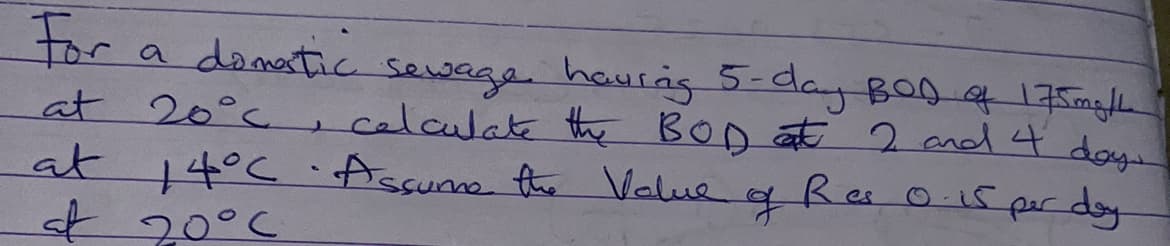 For a domestic sewage having 5-day BOD of 175mg/L
at 20°C, calculate the BOD at 2 and 4 days
at 14°C. Assume the Value of R as 0.15 per day
at 20°C